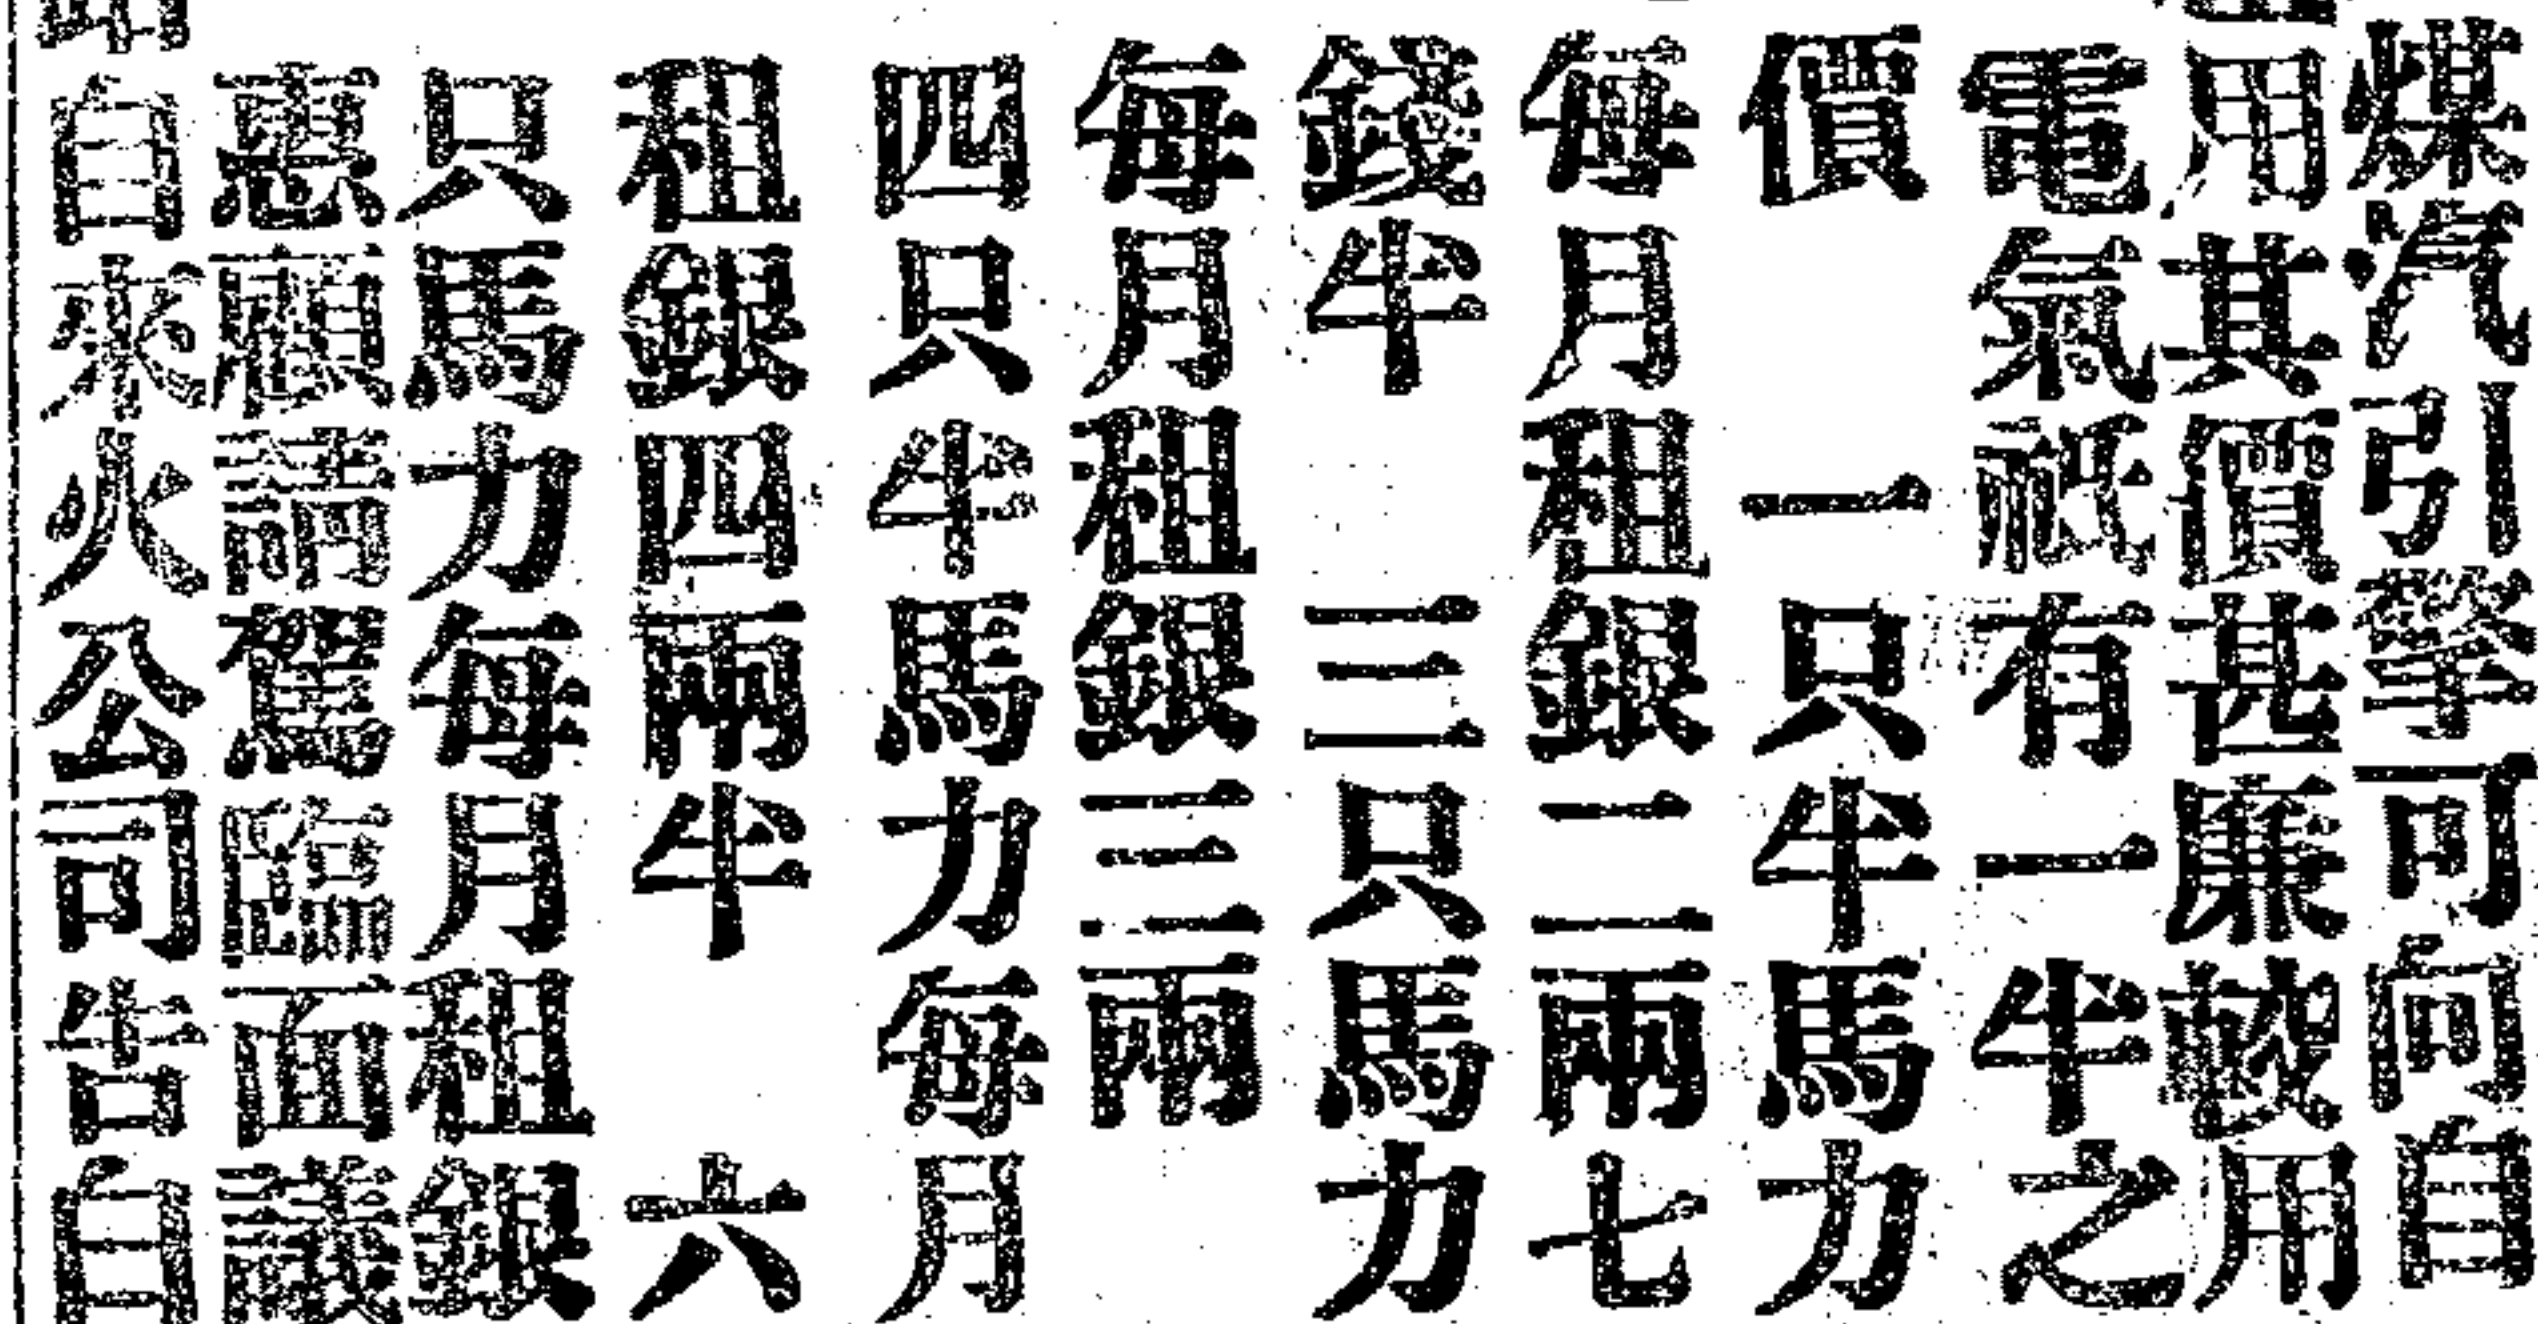 煤汽引擎可向自
用其價甚廉較用
電氣祇有一半之
價 一只半馬力
每月租銀二兩七
錢半 三只馬力
每月租銀三兩
四只半馬力每月
租銀四兩半 六
只馬力每月租銀
惠顧請駕臨面議
自來火公司告白